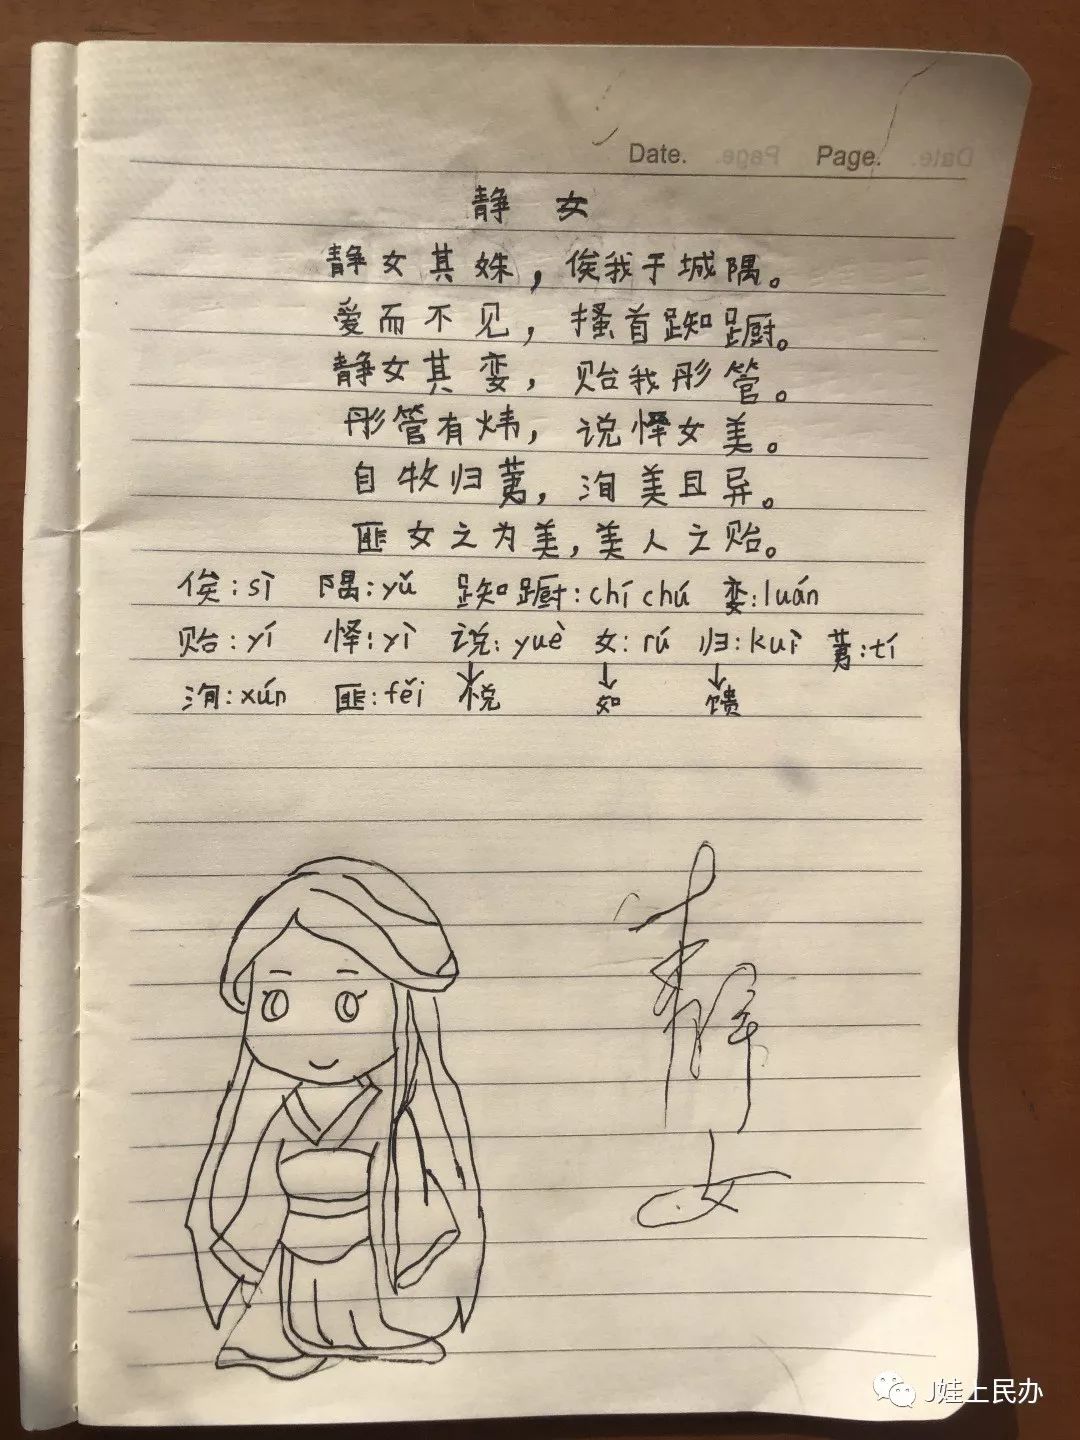 Date. Page.
静 女
静女其姝，俟我于城隅。
爱而不见，搔首踟蹰。
静女其娈，贻我彤管。
彤管有炜，说怿女美。
自牧归荑，洵美且异。
匪女之为美，美人之贻。
俟：sì 隅：yǔ 踟蹰：chí chú 娈：luán
贻：yí 怿：yì 说：yuè 女：rú 归：kuì 荑：tí
洵：xún 匪：fěi ↓悦 ↓如 ↓馈
静
女
J娃土民办